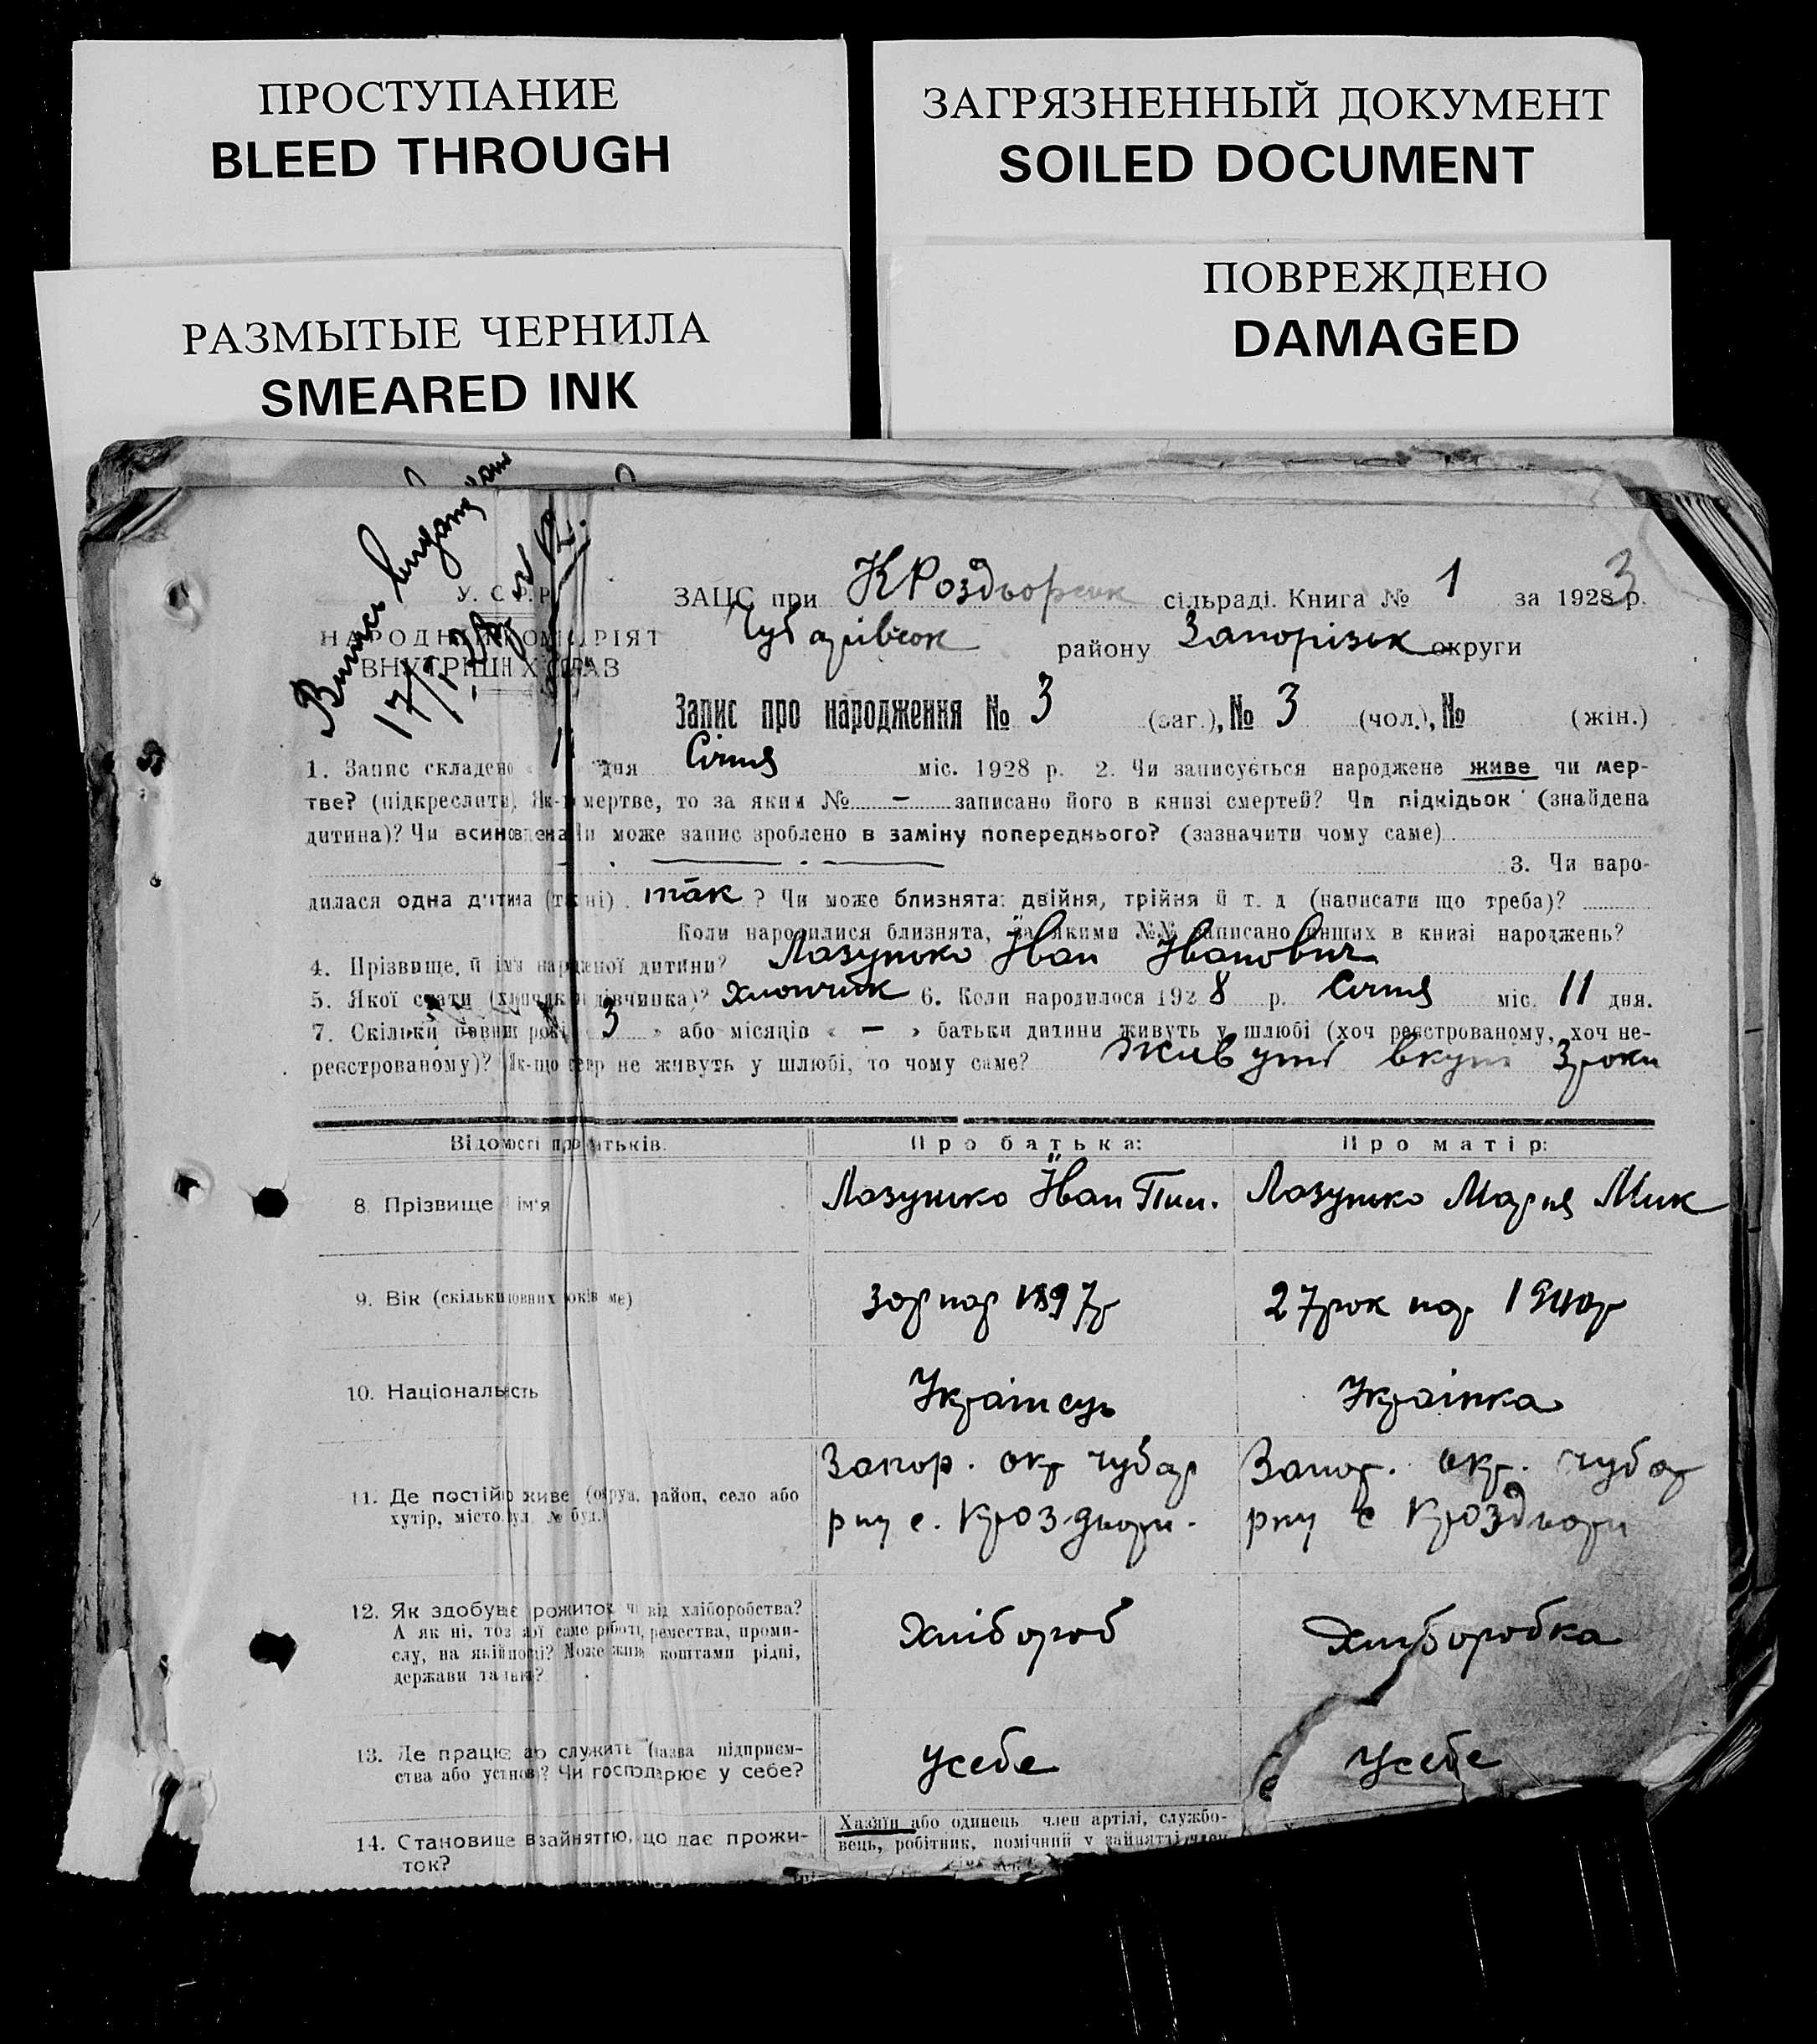 ПРОСТУПАНИЕ
BLEED THROUGH
ЗАГРЯЗНЕННЫЙ ДОКУМЕНТ
SOILED DOCUMENT
РАЗМЫТЫЕ ЧЕРНИЛА
SMEARED INK
ПОВРЕЖДЕНО
DAMAGED
Випись
17/
У. С. Р. Р.
НАРОДНИЙ КОМІСАРІЯТ
ВНУТРІШНІХ СПРАВ
ЗАЦС при К Роздорськ сільраді. Книга № 1 за 1928 р. 3
Чубарівськ району Запорізьк округи
Запис про народження № 3 (заг.), № 3 (чол.), № (жін.)
1. Запис складено « 11 » дня Січня міс. 1928 р. 2. Чи записується народжене живе чи мер-
тве? (підкреслити). Як-що мертве, то за яким № – записано його в книзі смертей? Чи підкідьок (знайдена
дитина)? Чи всиновлена? Чи може запис зроблено в заміну попереднього? (зазначити чому саме)
3. Чи наро-
дилася одна дитина (так, ні) так ? Чи може близнята: двійня, трійня й т. д (написати що треба)?
Коли народилися близнята, за якими №№ записано инших в книзі народжень?
4. Прізвище, й ім'я народженої дитини? Лазушко Іван Іванович
5. Якої стати (хлопчик, дівчинка)? Хлопчик 6. Коли народилося 1928 р. Січня міс. 11 дня.
7. Скільки повних років « 3 » або місяців « – » батьки дитини живуть у шлюбі (хоч реєстрованому, хоч не-
реєстрованому)? Як-що тепер не живуть у шлюбі, то чому саме? Живуть вкупі 3 роки
Відомості про батьків.
Про батька:
Про матір:
8. Прізвище й ім'я
Лазушко Іван Тим.
Лазушко Мария Мик
9. Вік (скільки повних років має)
30р нар 1897р
27рок нар
10. Національність
Українець
Українка
11. Де постійно живе (округа, район, село або
хутір, місто, вул. № буд.)
Запор. окр Чубар
рну с. Кроздьори.
Запор. окр. Чубар
рну с Кроздьори
12. Як здобуває прожиток чи від хліборобства?
А як ні, то з якої саме роботи, ремества, проми-
слу, на якій посаді? Може живе коштами рідні,
держави та инш?
Хлібороб
Хлиборобка
13. Де працює або служить (назва підприєм-
ства або установи)? Чи господарює у себе?
Усебе
Усебе
14. Становище в занятті, що дає прожи-
ток?
Хазяїн або одинець, член артілі, службо-
вець, робітник, помічний у занятті член